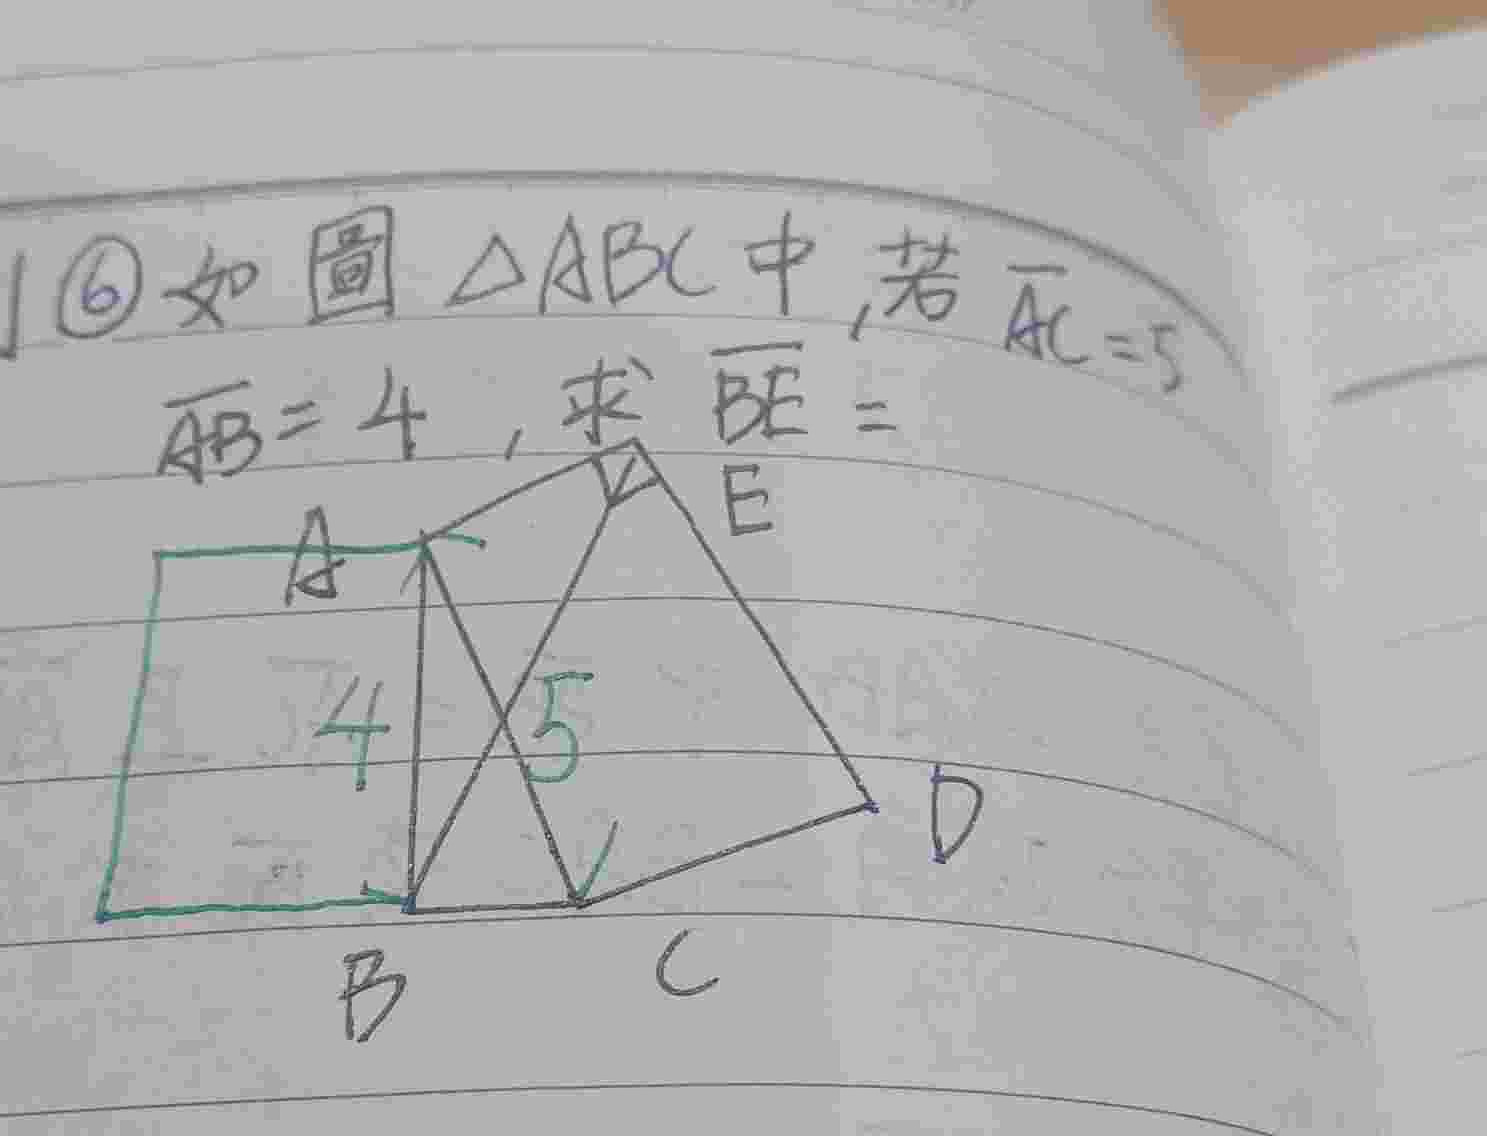 ⑥如圖 △ABC中,若 AC=5
AB=4,求 BE=
A
E
4
5
D
B
C